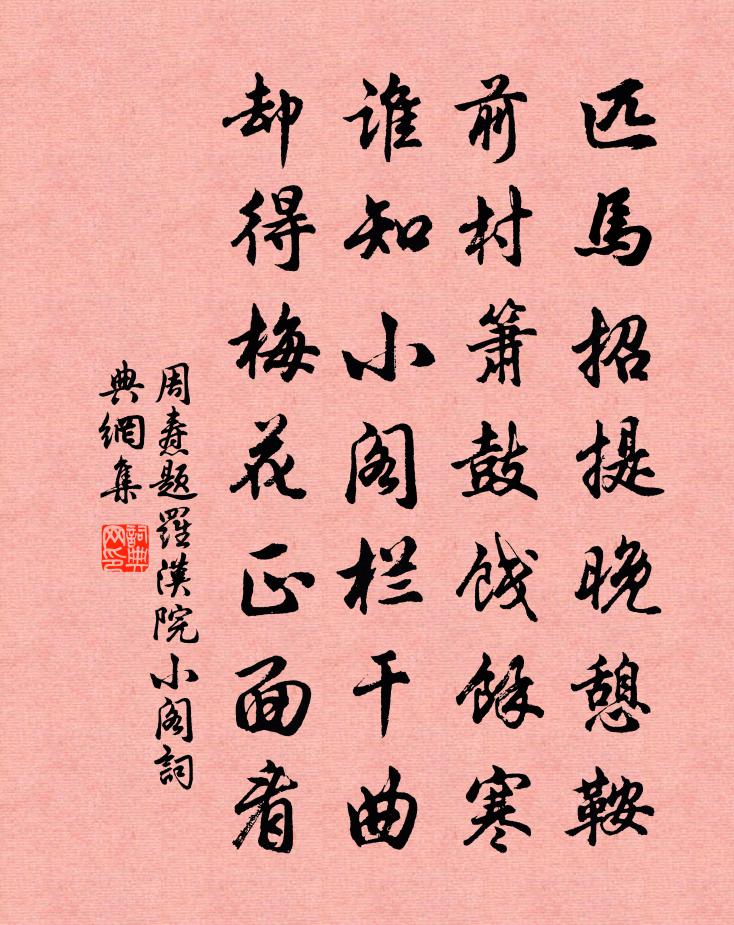 匹馬招提晚憩鞍
前村簫鼓餞餘寒
誰知小阁栏干曲
却得梅花正面看
周燾题羅漢院小阁詞
典網集
詞典
网印